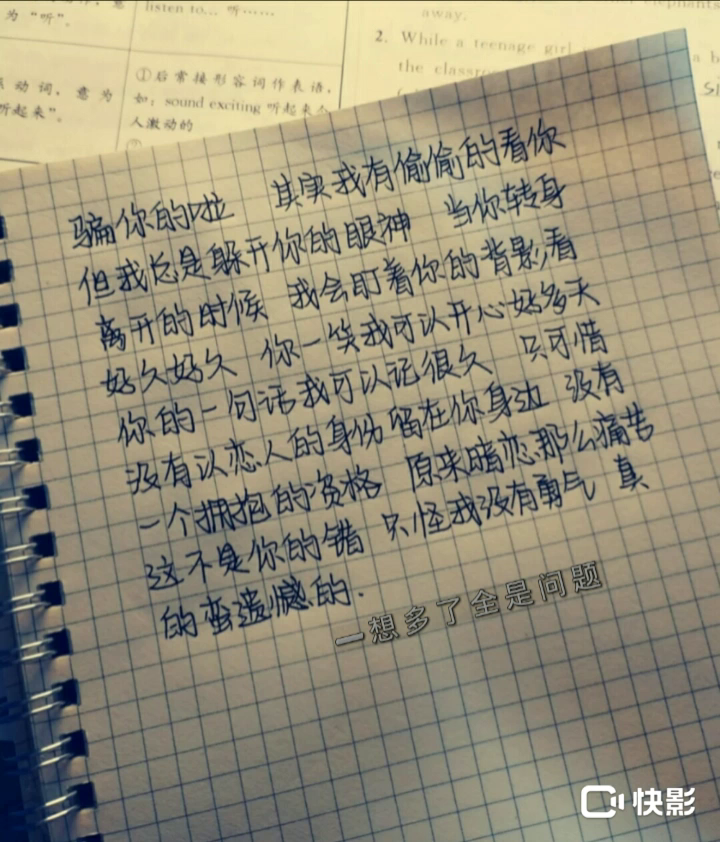 为“听”。
listen to... 听……
away.
2. While a teenage girl
the classro
动词，意为
听起来”。
①后常接形容词作表语，
如：sound exciting 听起来令
人激动的
骗你的啦 其实我有偷偷的看你
但我总是躲开你的眼神 当你转身
离开的时候 我会盯着你的背影看
好久好久 你一笑我可以开心好多天
你的一句话我可以记很久 只可惜
没有以恋人的身份留在你身边 没有
一个拥抱的资格 原来暗恋那么痛苦
这不是你的错 只怪我没有勇气 真
的蛮遗憾的.
—想多了全是问题
快影